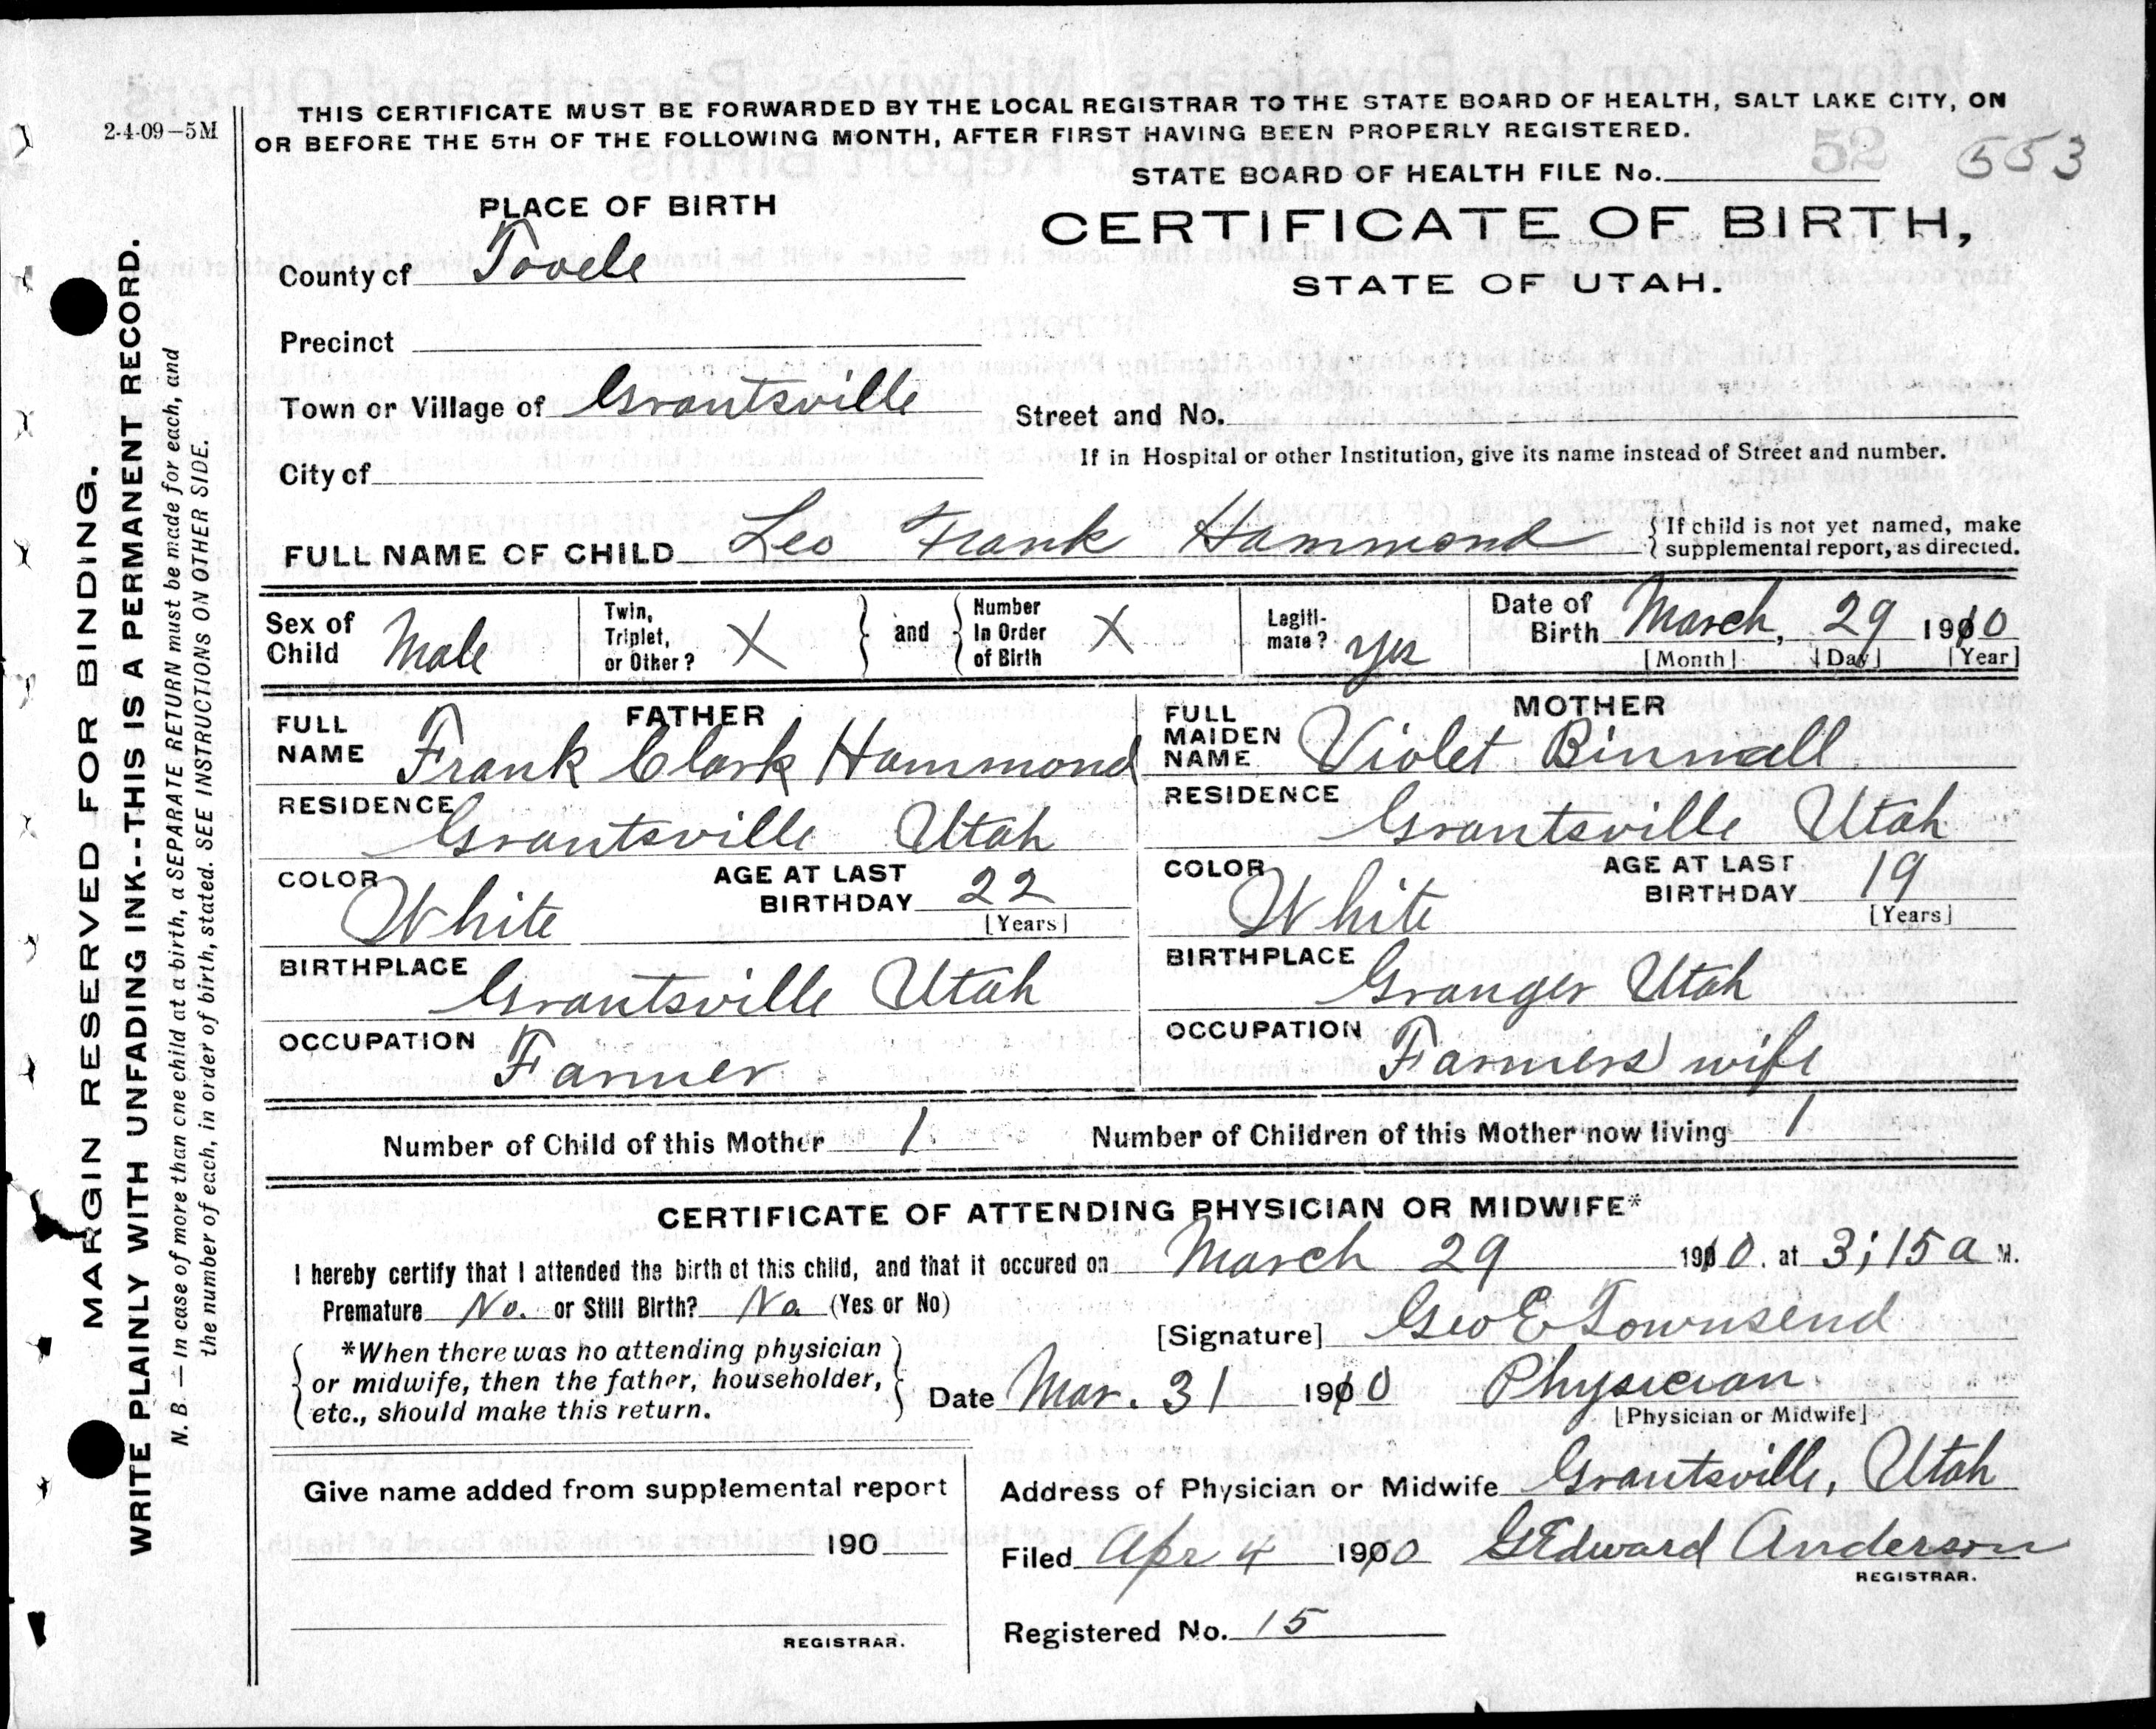 2-4-09-5M
THIS CERTIFICATE MUST BE FORWARDED BY THE LOCAL REGISTRAR TO THE STATE BOARD OF HEALTH, SALT LAKE CITY, ON
OR BEFORE THE 5TH OF THE FOLLOWING MONTH, AFTER FIRST HAVING BEEN PROPERLY REGISTERED.
STATE BOARD OF HEALTH FILE No. 52 553
PLACE OF BIRTH
CERTIFICATE OF BIRTH,
STATE OF UTAH.
County of Tooele
Precinct
Town or Village of Grantsville
Street and No.
If in Hospital or other Institution, give its name instead of Street and number.
City of
FULL NAME OF CHILD Leo Frank Hammond
{ If child is not yet named, make
supplemental report, as directed.
Sex of Child Male
Twin, Triplet, or Other? X } and { Number In Order of Birth X
Legiti-mate? yes
Date of Birth March, 29 1910
[Month] [Day] [Year]
FATHER
FULL NAME Frank Clark Hammond
RESIDENCE Grantsville Utah
COLOR White
AGE AT LAST BIRTHDAY 22
[Years]
BIRTHPLACE Grantsville Utah
OCCUPATION Farmer
MOTHER
FULL MAIDEN NAME Violet Binnall
RESIDENCE Grantsville Utah
COLOR White
AGE AT LAST BIRTHDAY 19
[Years]
BIRTHPLACE Granger Utah
OCCUPATION Farmers wife
Number of Child of this Mother 1
Number of Children of this Mother now living 1
CERTIFICATE OF ATTENDING PHYSICIAN OR MIDWIFE*
I hereby certify that I attended the birth of this child, and that it occured on March 29 1910. at 3;15 a M.
Premature No. or Still Birth? No (Yes or No)
[Signature] Geo E Townsend
{ *When there was no attending physician
or midwife, then the father, householder,
etc., should make this return. }
Date Mar. 31 1910 Physician
[Physician or Midwife]
Give name added from supplemental report
190
REGISTRAR.
Address of Physician or Midwife Grantsville, Utah
Filed Apr 4 1910 G Edward Anderson
REGISTRAR.
Registered No. 15
MARGIN RESERVED FOR BINDING.
WRITE PLAINLY WITH UNFADING INK--THIS IS A PERMANENT RECORD.
N. B. — In case of more than one child at a birth, a SEPARATE RETURN must be made for each, and
the number of each, in order of birth, stated. SEE INSTRUCTIONS ON OTHER SIDE.